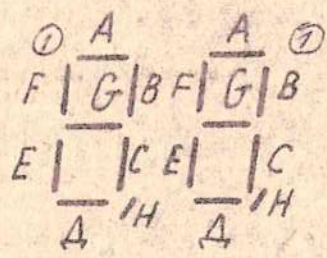 ① A A ①
F G B F G B
E C E C
Д H Д H